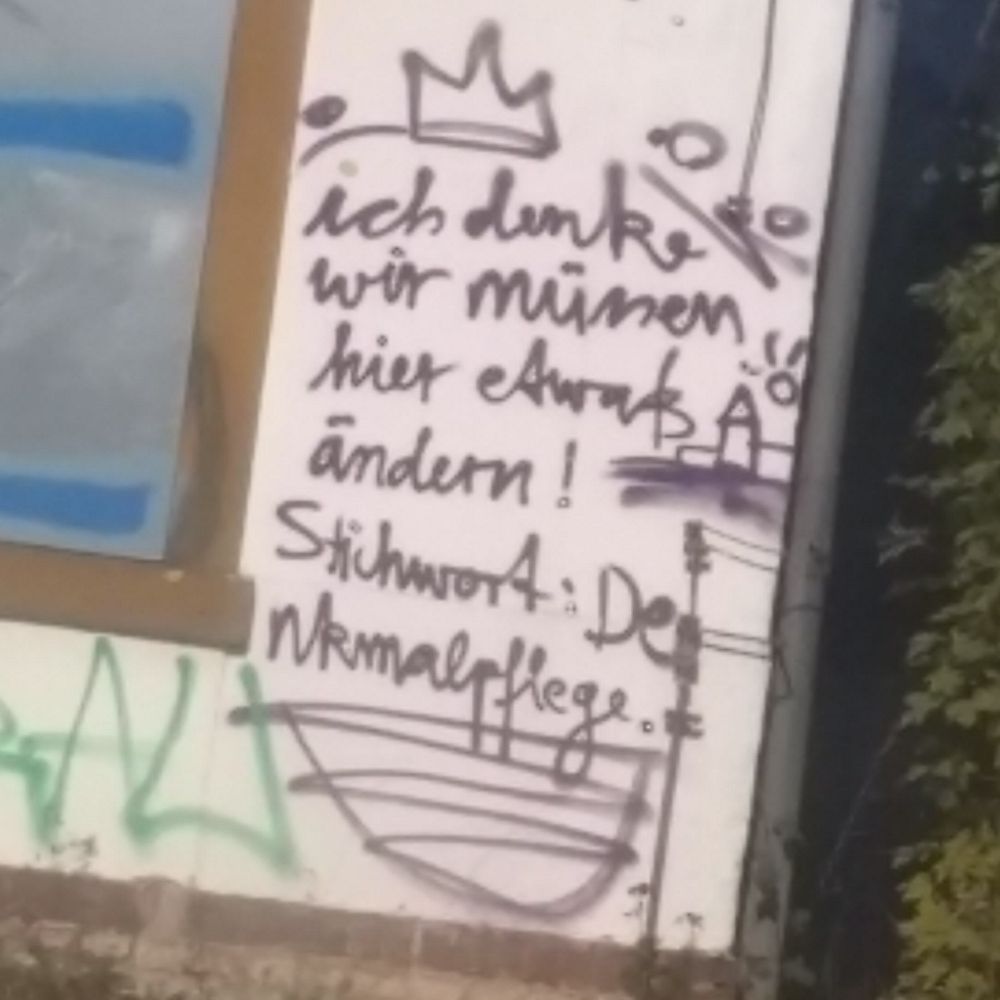 ich denke
wir müssen
hier etwaß
ändern!
Stichwort: De
nkmalpflege.